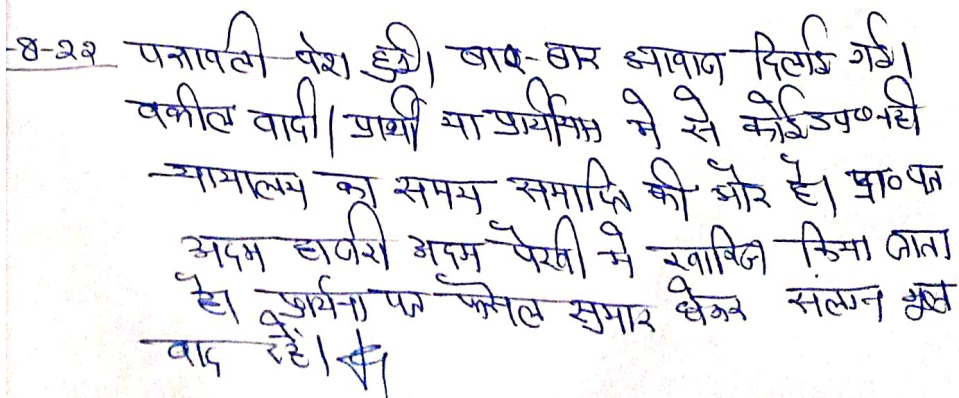 -8-22 पत्रावली पेश हुई। बार-बार आवाज दिलाई गई।
वकील वादी/प्रार्थी या प्रार्थीगण मे से कोई उप० नही
न्यायालय का समय समाप्ति की ओर है। प्रा० पत्र
अदम हाजरी अदम पैरवी मे खारिज किया जाता
है। प्रार्थना पत्र फैसल सुमार होकर संलग्न मूल
वाद रहे।